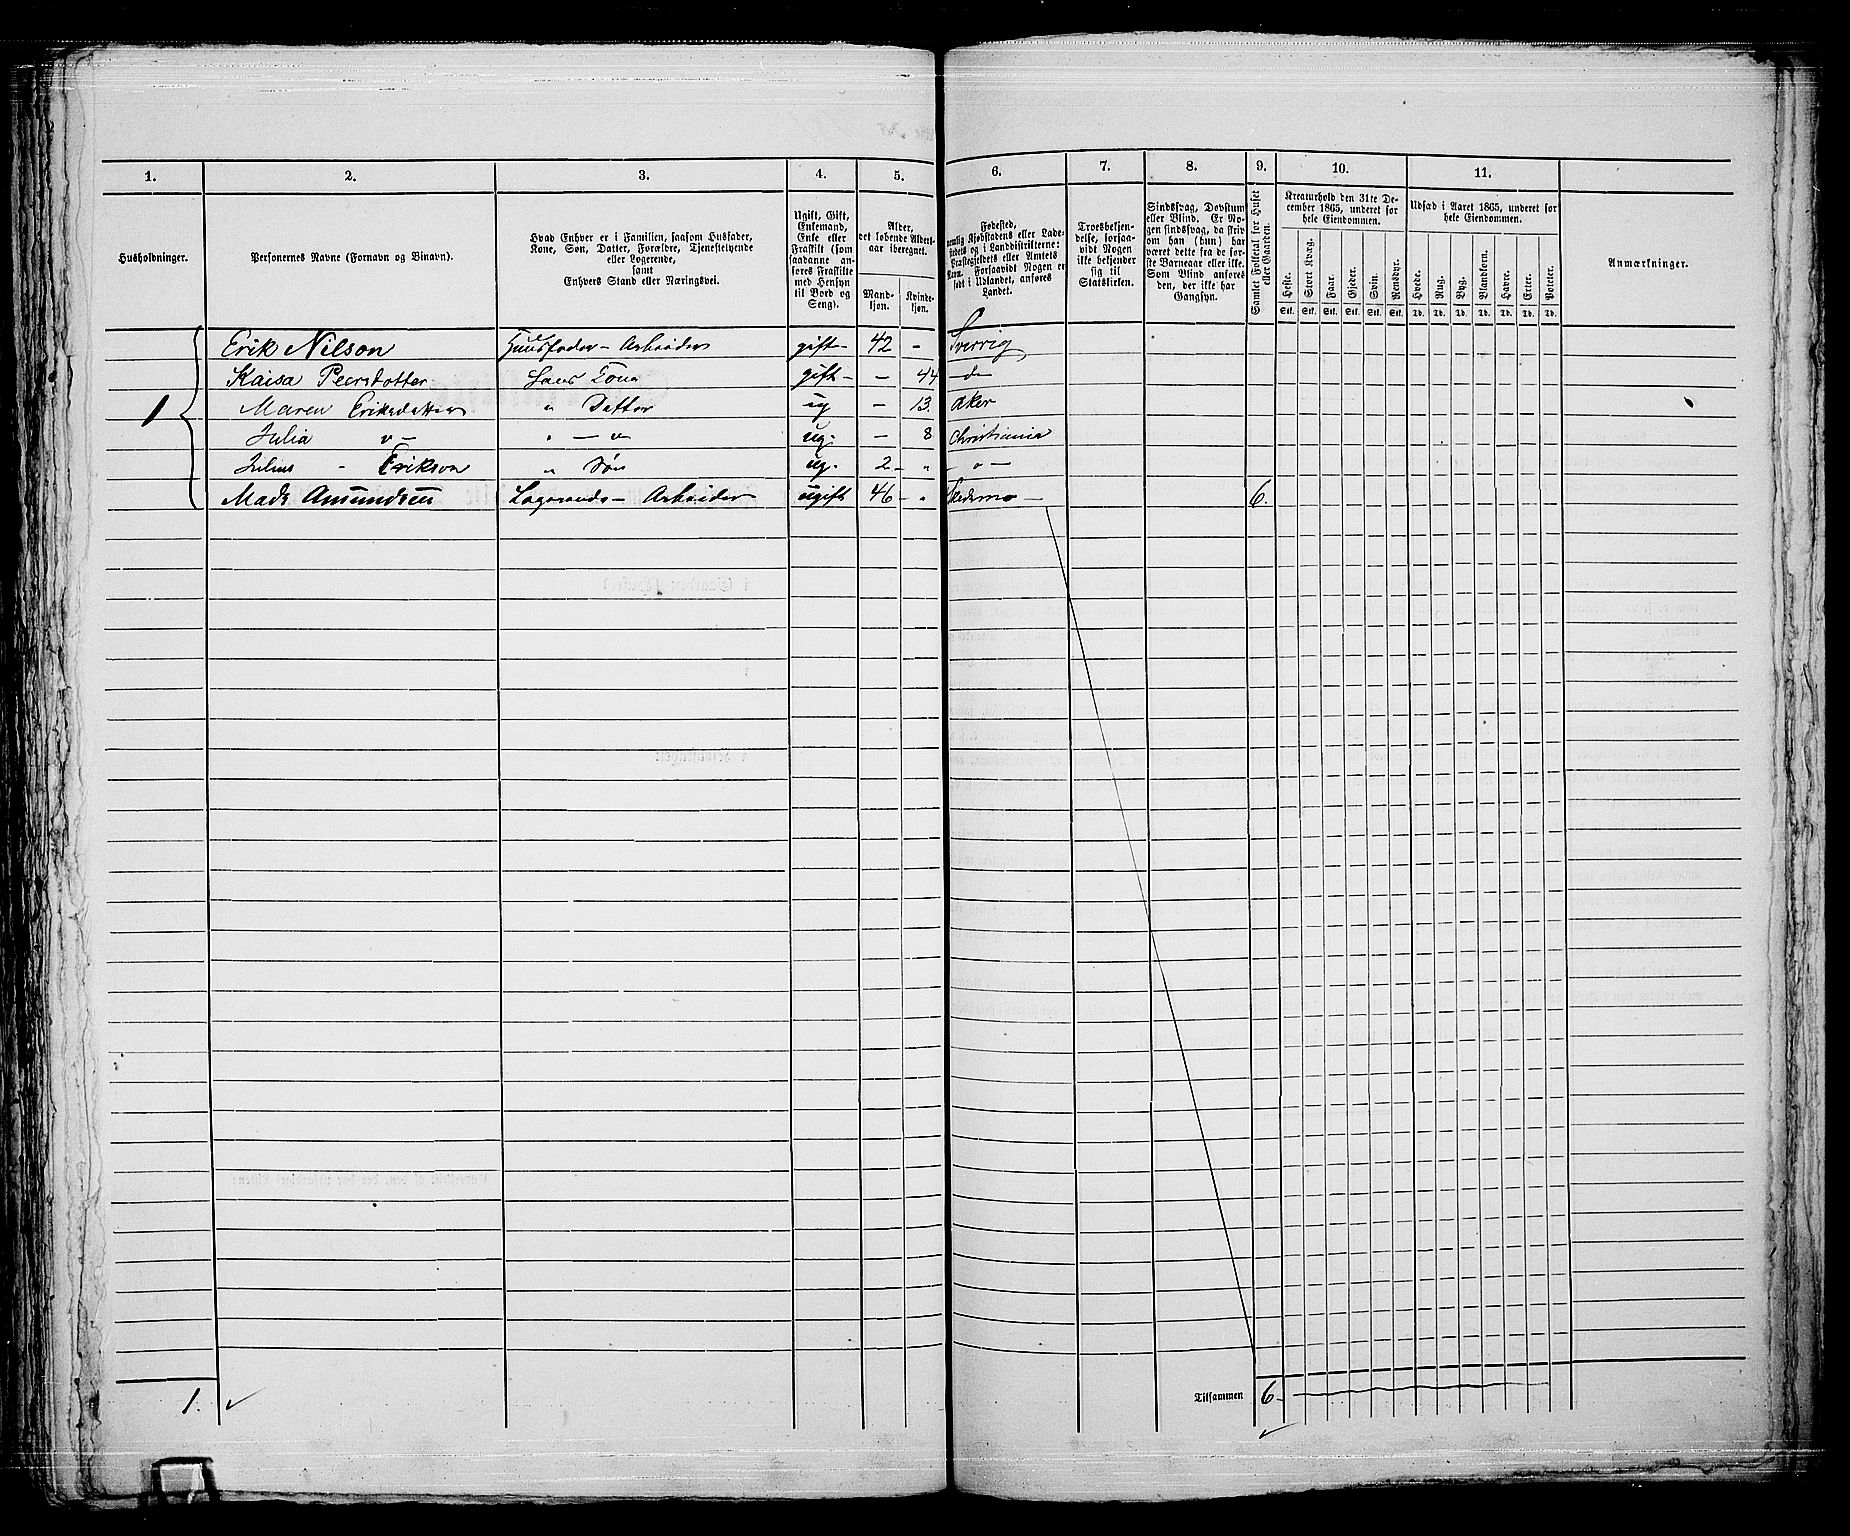 1. 2. 3. 4. 5. 6. 7. 8. 9. 10. 11.
Husholdninger.
Personernes Navne (Fornavn og Binavn).
Hvad Enhver er i Familien, saasom Husfader,
Kone, Søn, Datter, Forældre, Tjenestetyende
eller Logerende,
samt
Enhvers Stand eller Næringsvei.
Ugift, Gift,
Enkemand,
Enke eller
Fraskilt (som
saadanne an-
føres Fraskilte
med Hensyn
til Bord og
Seng).
Alder,
det løbende Alders-
aar iberegnet.
Mand-
kjøn.
Kvinde-
kjøn.
Fødested,
nemlig Kjøbstadens eller Lade-
stedets og i Landdistrikterne:
Præstegjeldets eller Amtets
Navn. Forsaavidt Nogen er
født i Udlandet, anføres
Landet.
Troesbekjen-
delse, forsaa-
vidt Nogen
ikke bekjender
sig til
Statskirken.
Sindssvag, Døvstum
eller Blind. Er No-
gen sindssvag, da skriv
om han (hun) har
været dette fra de før-
ste Barneaar eller ikke.
Som Blind anføres
den, der ikke har
Gangsyn.
Samlet Folketal for Huset
eller Gaarden.
Kreaturhold den 31te De-
cember 1865, underet for
hele Eiendommen.
Heste. Stort Kvæg. Faar. Gjeder. Svin. Rensdyr.
Stk. Stk. Stk. Stk. Stk. Stk.
Udsæd i Aaret 1865, underet for
hele Eiendommen.
Hvede. Rug. Byg. Blandkorn. Havre. Erter. Poteter.
Td. Td. Td. Td. Td. Td. Td.
Anmærkninger.
1
Erik Nilson Huusfader - Arbeider gift - 42 - Sverrig
Kaisa Peersdotter Hans Kone gift - - 44 - d -
Maren Eriksdatter " Datter ug - 13. Aker
Julia " - " - " ug. - 8 Christiania
Julius - Erikson " Søn ug. 2 - " - " -
Mads Amundsen Logerende - Arbeider ugift 46 - " Skedsmo - 6.
1.
Tilsammen 6 -